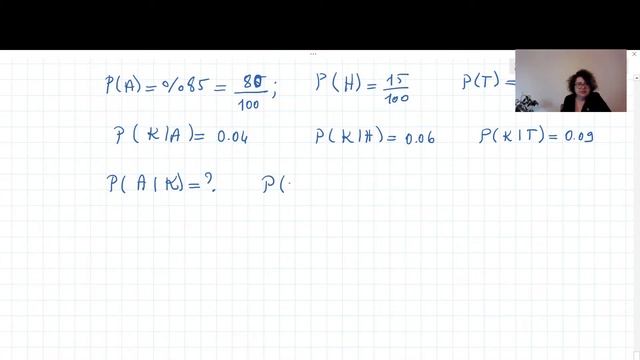 P(A) = %85 = 85/100 ; P(H) = 15/100 P(T) =
P(K|A) = 0.04 P(K|H) = 0.06 P(K|T) = 0.09
P(A|K) = ? P(